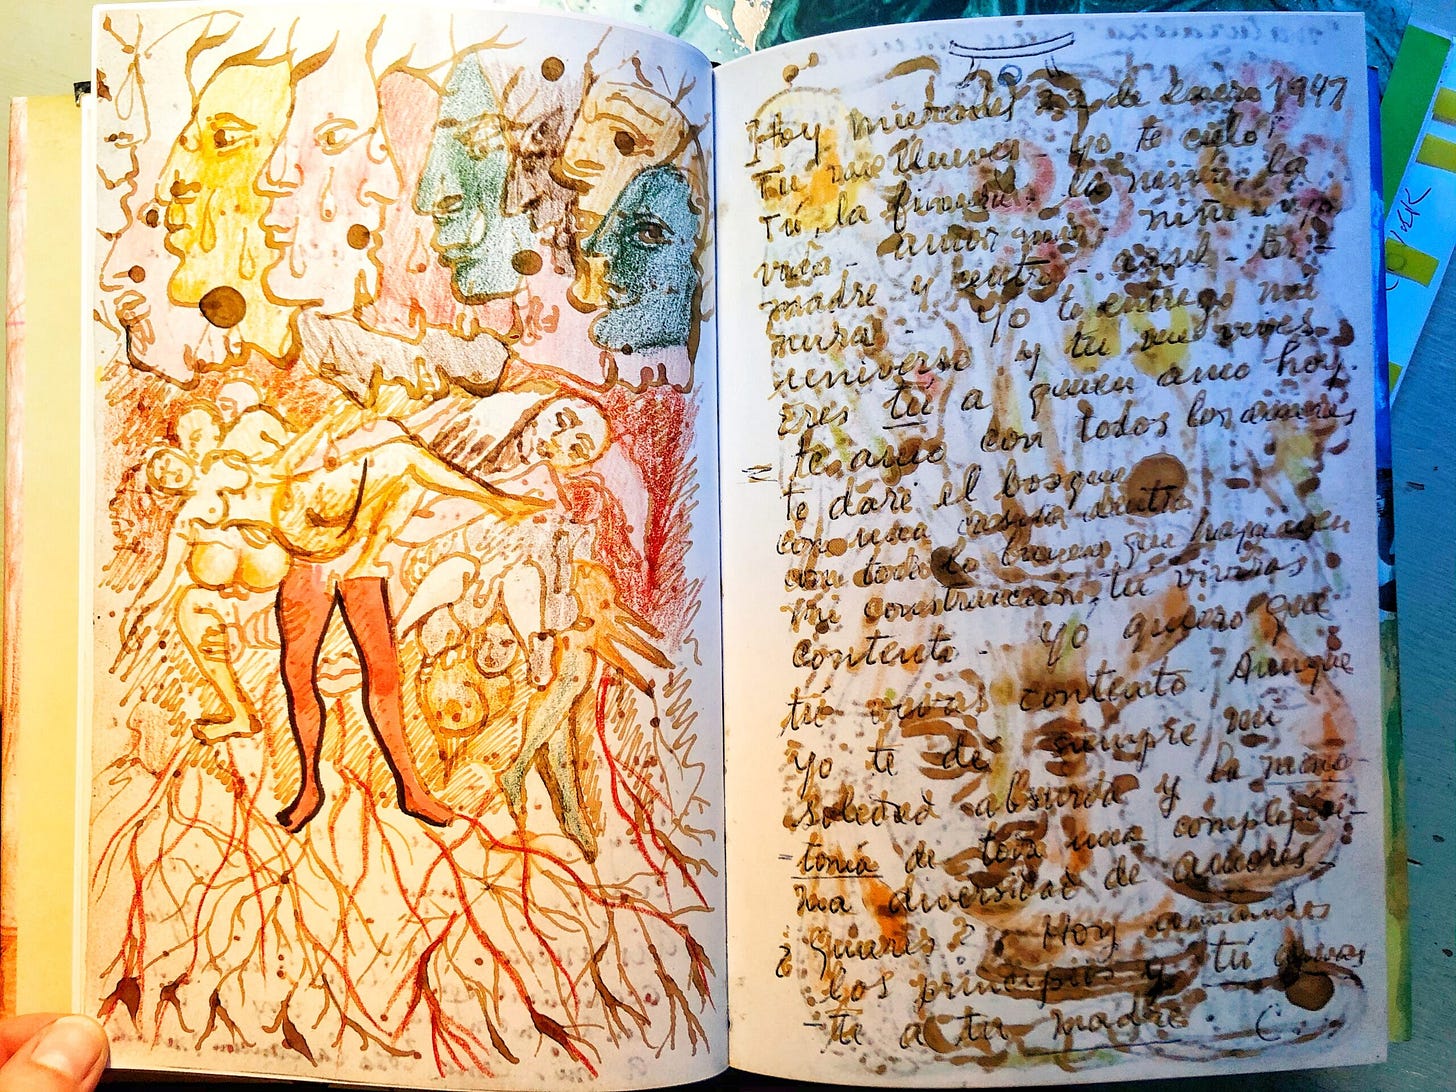 Hoy Miercoles 22 de Enero 1947
Tu me llueves - yo te cielo
Tú, la finura. la niñez, la
vida - amor mío - niño - viejo
madre y centro - azul - ter-
nura - Yo te entrego mi
universo y tu me vives
Eres tú a quien amo hoy.
te amo con todos los amores
te daré el bosque
con una casita dentro
con todo lo bueno que haya en
mi construccion, tú vivirás
contento - yo quiero que
tú vivas contento. Aunque
yo te dé siempre mi
soledad absurda y la mono-
tonía de toda una complejisi-
ma diversidad de amores -
¿Quieres? Hoy amando
los principios y tú amas
te a tu madre